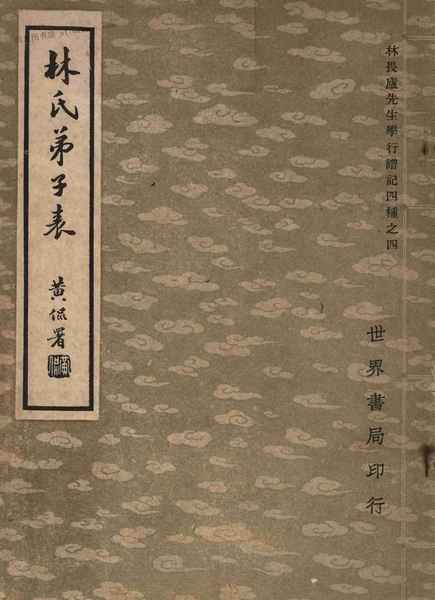 林畏廬先生學行譜記四種之四
世界書局印行
林氏弟子表
黃侃署